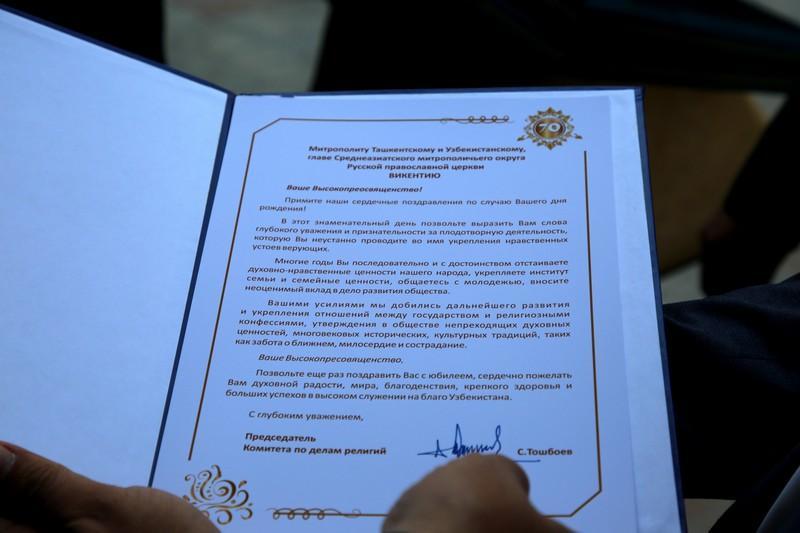 70
Митрополиту Ташкентскому и Узбекистанскому,
главе Среднеазиатского митрополичьего округа
Русской православной церкви
ВИКЕНТИЮ
Ваше Высокопреосвященство!
Примите наши сердечные поздравления по случаю Вашего дня
рождения!
В этот знаменательный день позвольте выразить Вам слова
глубокого уважения и признательности за плодотворную деятельность,
которую Вы неустанно проводите во имя укрепления нравственных
устоев верующих.
Многие годы Вы последовательно и с достоинством отстаиваете
духовно-нравственные ценности нашего народа, укрепляете институт
семьи и семейные ценности, общаетесь с молодежью, вносите
неоценимый вклад в дело развития общества.
Вашими усилиями мы добились дальнейшего развития
и укрепления отношений между государством и религиозными
конфессиями, утверждения в обществе непреходящих духовных
ценностей, многовековых исторических, культурных традиций, таких
как забота о ближнем, милосердие и сострадание.
Ваше Высокопреосвященство,
Позвольте еще раз поздравить Вас с юбилеем, сердечно пожелать
Вам духовной радости, мира, благоденствия, крепкого здоровья и
больших успехов в высоком служении на благо Узбекистана.
С глубоким уважением,
Председатель
Комитета по делам религий С.Тошбоев